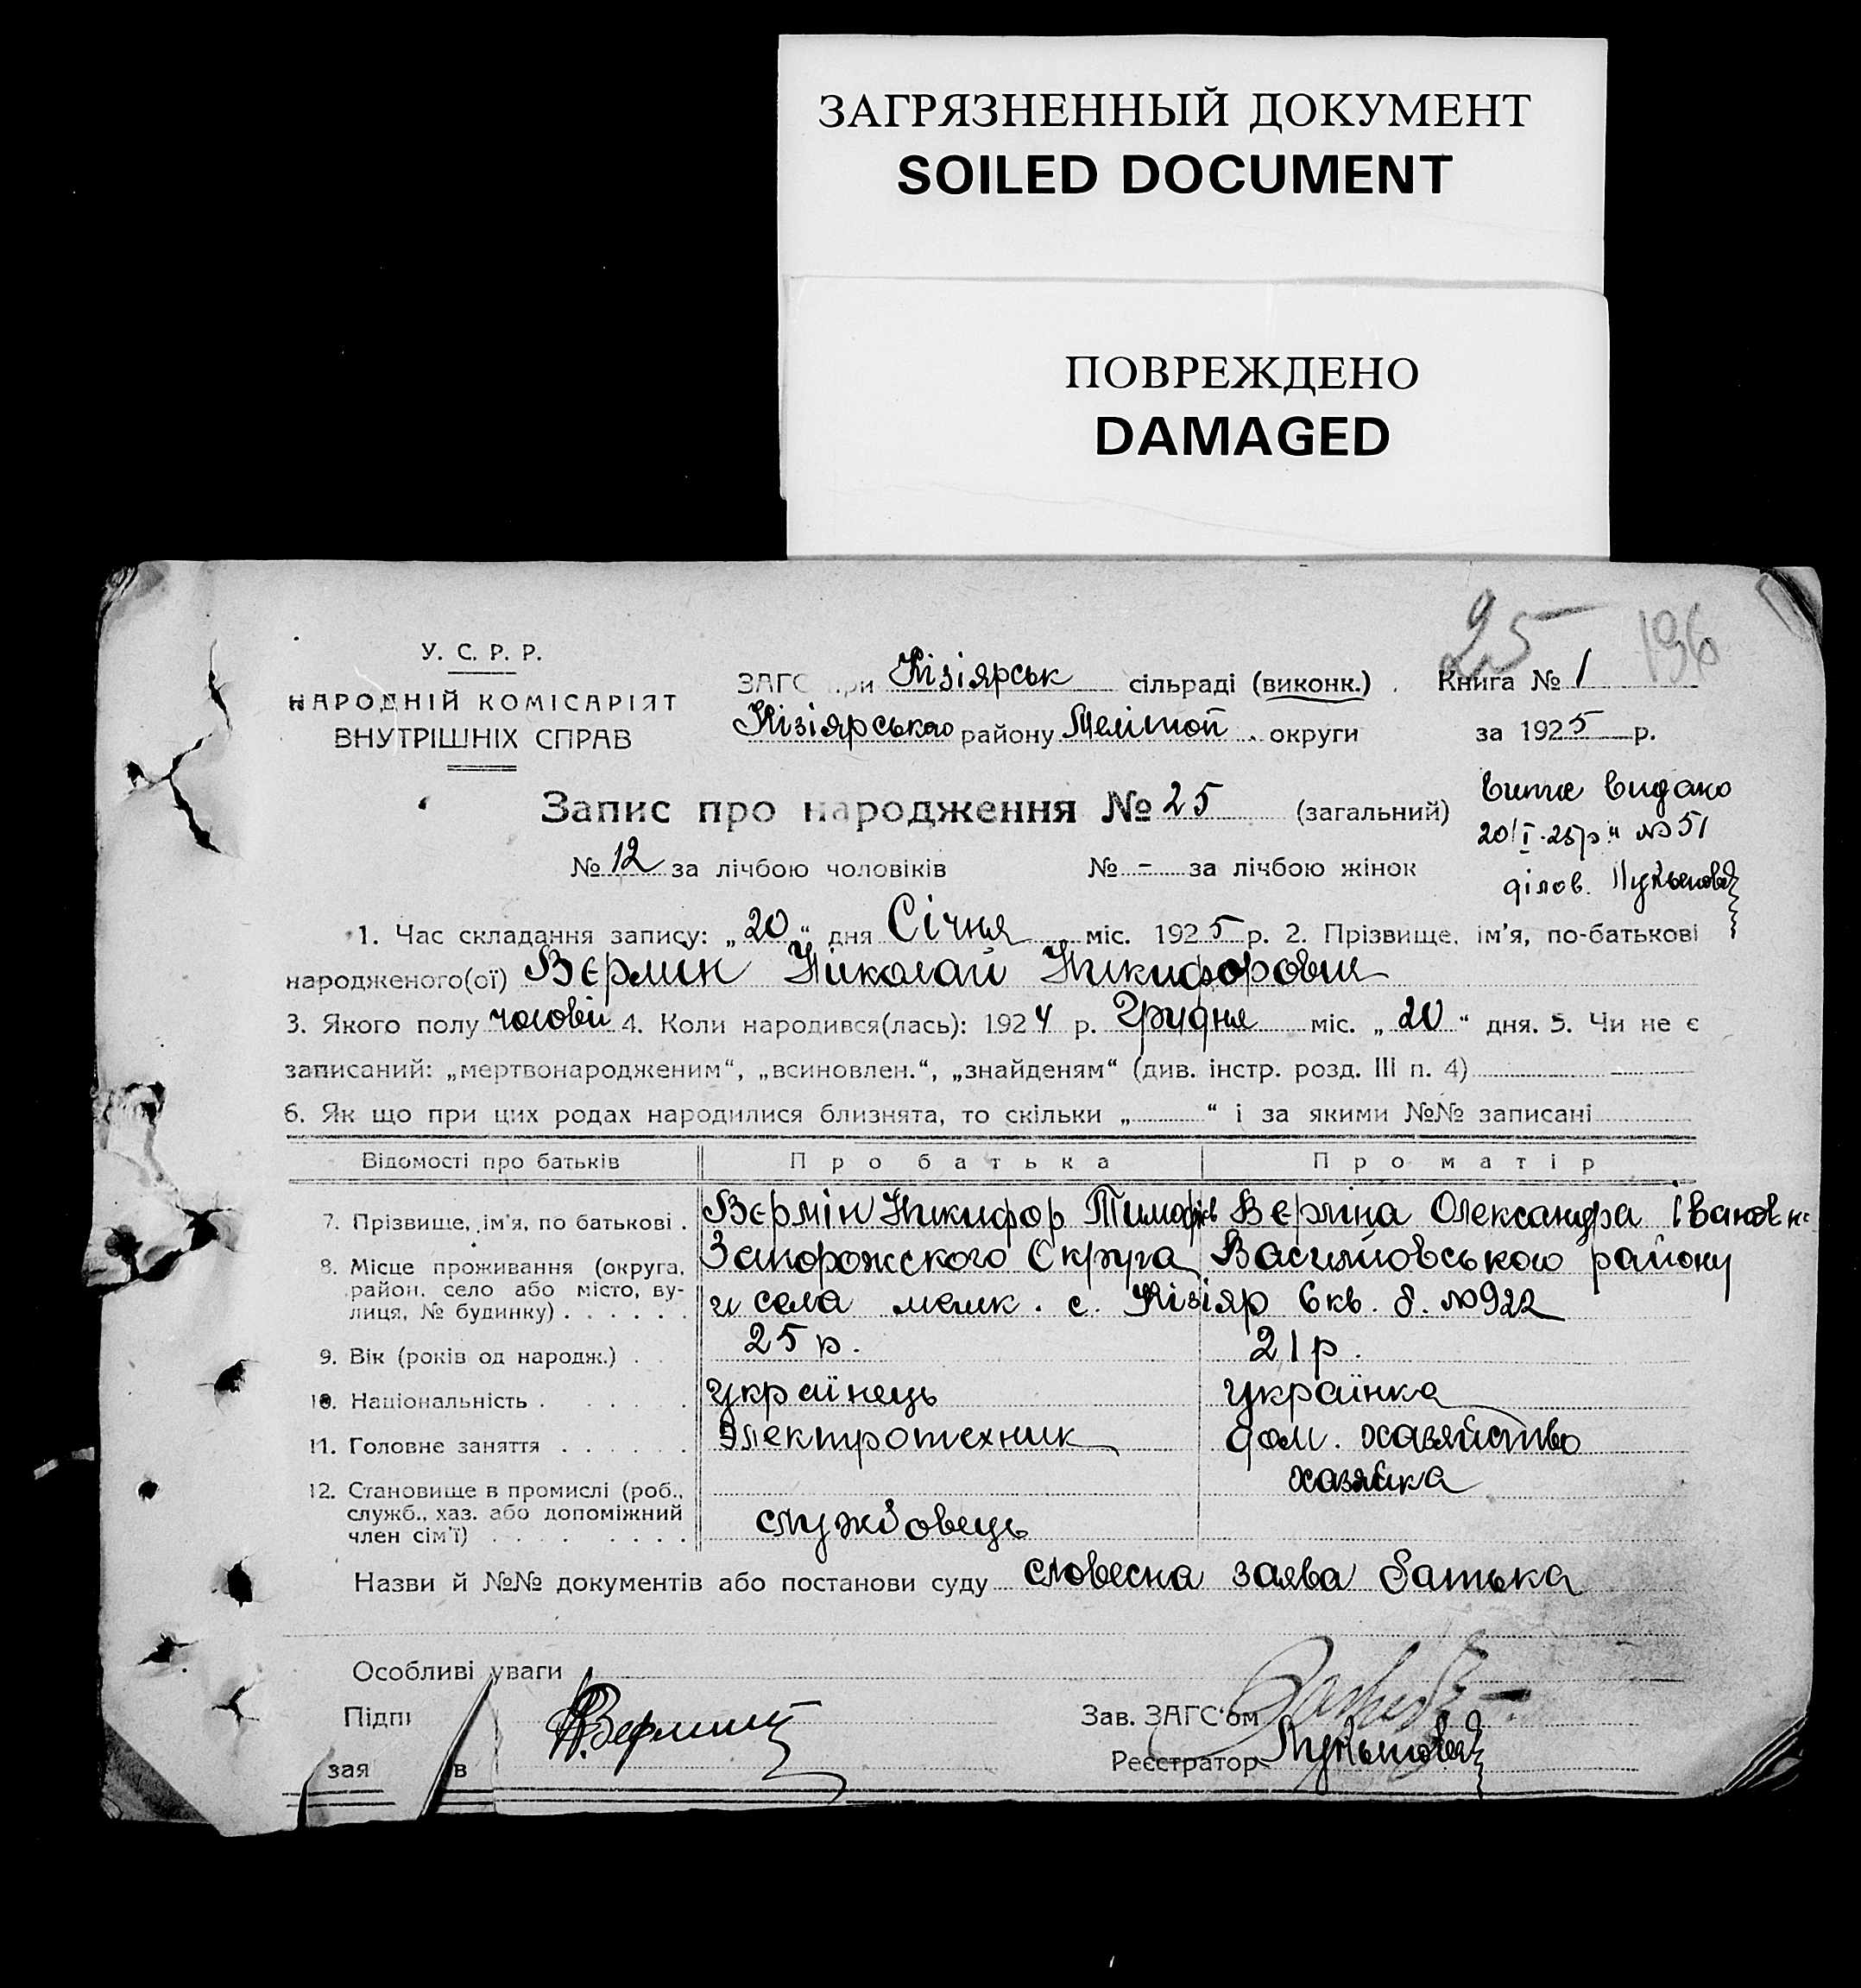 ЗАГРЯЗНЕННЫЙ ДОКУМЕНТ
SOILED DOCUMENT
ПОВРЕЖДЕНО
DAMAGED
25 196
У. С. Р. Р.
НАРОДНІЙ КОМІСАРІЯТ
ВНУТРІШНІХ СПРАВ
ЗАГС при Кізіярськ сільраді (виконк.) . Книга № 1
Кізіярського району Меліт. округи за 1925 р.
Запис про народження № 25 (загальний)
випис видано
20/I-25р. № 51
діловод.
№ 12 за лічбою чоловіків № - за лічбою жінок
1. Час складання запису: „20" дня Січня міс. 1925 р. 2. Прізвище, ім'я, по-батькові
народженого(ої) Вєрмін Николай Никифорович
3. Якого полу чоловіч 4. Коли народився(лась): 1924 р. Грудня міс. „20" дня. 5. Чи не є
записаний: „мертвонародженим", „всиновлен.", „знайденям" (див. інстр. розд. III п. 4)
6. Як що при цих родах народилися близнята, то скільки „ " і за якими №№ записані
Відомості про батьків Про батька Про матір
7. Прізвище, ім'я, по батькові . Вєрмін Никифор Тимофіїв Вєрміна Олександра Івановн
8. Місце проживання (округа, район, село або місто, вулиця, № будинку) . . . . . . Запорожского Округа Василівського району
и села мешк. с. Кізіяр 6 кв. д. № 922
9. Вік (років од народж.) . . 25 р. 21 р.
10. Національність . . . . . . українець українка
11. Головне заняття . . . . . . Электротехник дом. хазяйство
12. Становище в промислі (роб., служб., хаз. або допоміжний член сім'ї) . . . . . . . . службовець хазяйка
Назви й №№ документів або постанови суду словесна заява батька
Особливі уваги
Підпи Зав. ЗАГС'ом
зая в Реєстратор